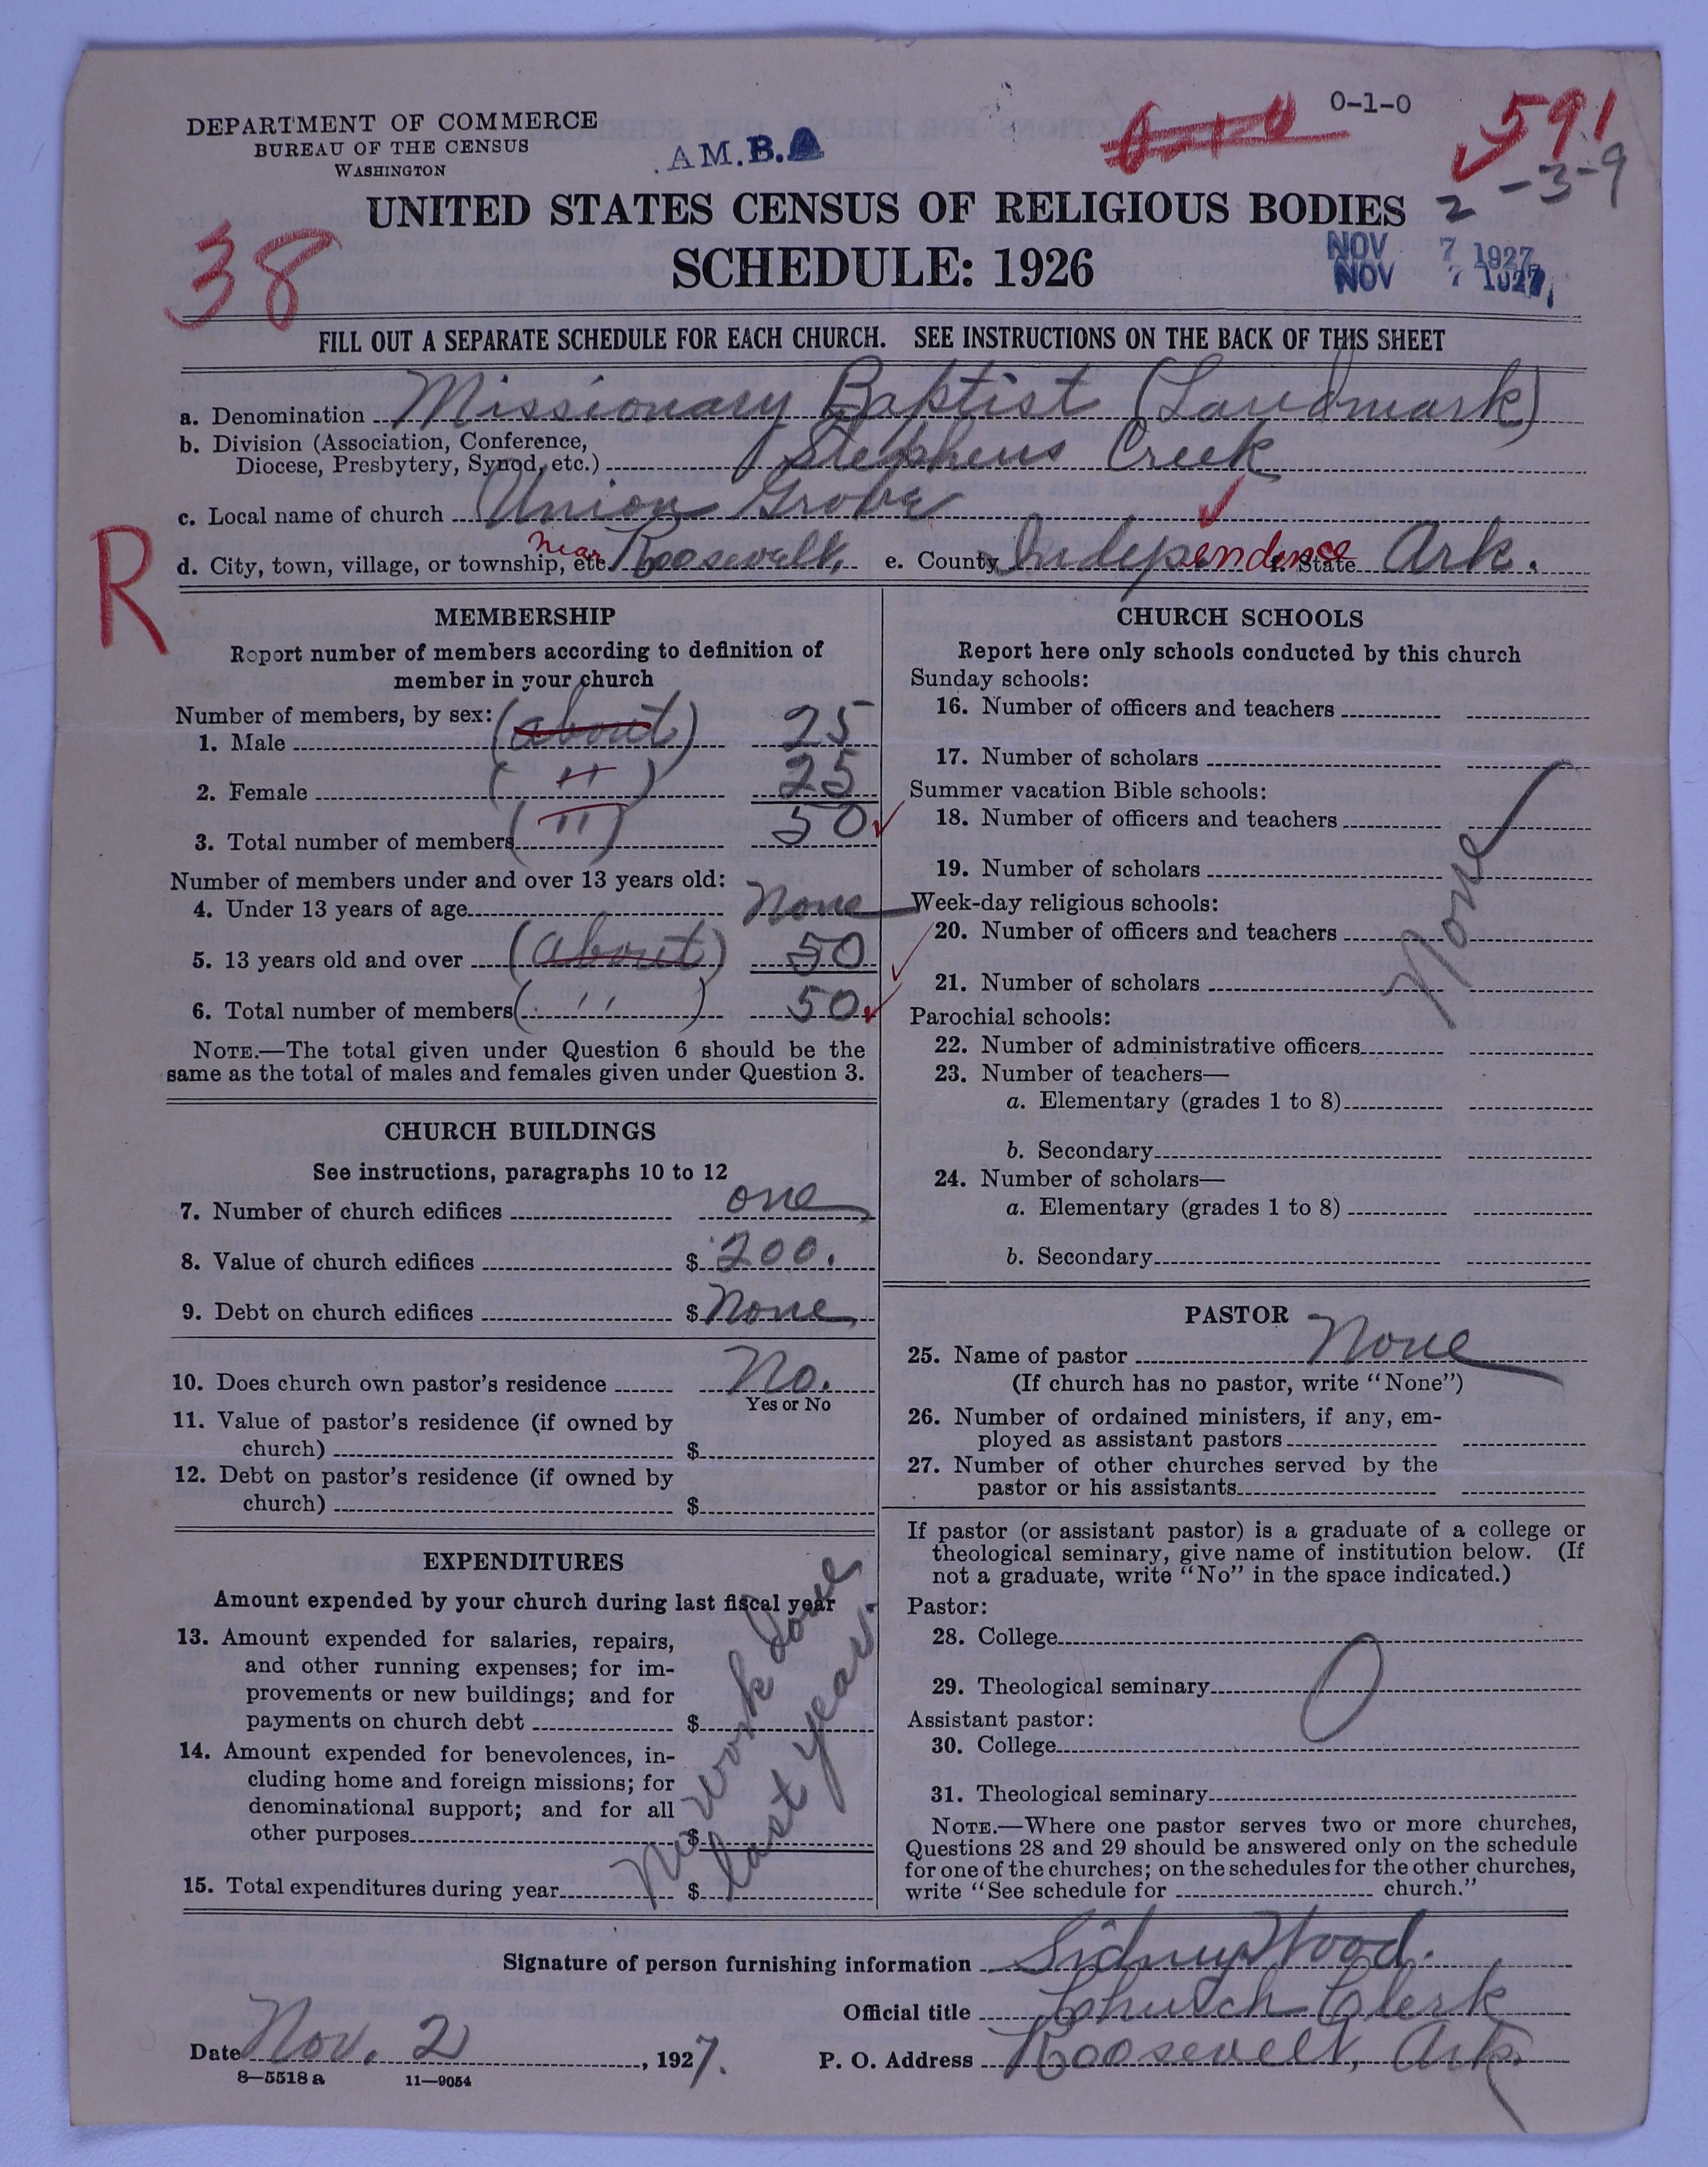 DEPARTMENT OF COMMERCE
BUREAU OF THE CENSUS
WASHINGTON
A.M.B.A
0-1-0
591
2-3-9
UNITED STATES CENSUS OF RELIGIOUS BODIES
SCHEDULE: 1926
NOV 7 1927
NOV 7 1927
38
FILL OUT A SEPARATE SCHEDULE FOR EACH CHURCH. SEE INSTRUCTIONS ON THE BACK OF THIS SHEET
a. Denomination Missionary Baptist (Landmark)
b. Division (Association, Conference,
Diocese, Presbytery, Synod, etc.) Stephens Creek
c. Local name of church Union Grove
d. City, town, village, or township, etc. near Roosevelt, e. County Independence f. State Ark.
R
MEMBERSHIP
Report number of members according to definition of
member in your church
Number of members, by sex:
1. Male (about) 25
2. Female ( " ) 25
3. Total number of members ( " ) 50
Number of members under and over 13 years old:
4. Under 13 years of age None
5. 13 years old and over (about) 50
6. Total number of members ( " ) 50
NOTE.—The total given under Question 6 should be the
same as the total of males and females given under Question 3.
CHURCH BUILDINGS
See instructions, paragraphs 10 to 12
7. Number of church edifices one
8. Value of church edifices $ 200.
9. Debt on church edifices $ None
10. Does church own pastor's residence No.
Yes or No
11. Value of pastor's residence (if owned by
church) $
12. Debt on pastor's residence (if owned by
church) $
EXPENDITURES
Amount expended by your church during last fiscal year
13. Amount expended for salaries, repairs,
and other running expenses; for im-
provements or new buildings; and for
payments on church debt $
14. Amount expended for benevolences, in-
cluding home and foreign missions; for
denominational support; and for all
other purposes $
15. Total expenditures during year $
No work done
last year.
CHURCH SCHOOLS
Report here only schools conducted by this church
Sunday schools:
16. Number of officers and teachers
17. Number of scholars
Summer vacation Bible schools:
18. Number of officers and teachers
19. Number of scholars
Week-day religious schools:
20. Number of officers and teachers
21. Number of scholars
None
Parochial schools:
22. Number of administrative officers
23. Number of teachers—
a. Elementary (grades 1 to 8)
b. Secondary
24. Number of scholars—
a. Elementary (grades 1 to 8)
b. Secondary
PASTOR
25. Name of pastor None
(If church has no pastor, write "None")
26. Number of ordained ministers, if any, em-
ployed as assistant pastors
27. Number of other churches served by the
pastor or his assistants
If pastor (or assistant pastor) is a graduate of a college or
theological seminary, give name of institution below. (If
not a graduate, write "No" in the space indicated.)
Pastor:
28. College
29. Theological seminary
0
Assistant pastor:
30. College
31. Theological seminary
NOTE.—Where one pastor serves two or more churches,
Questions 28 and 29 should be answered only on the schedule
for one of the churches; on the schedules for the other churches,
write "See schedule for church."
Signature of person furnishing information Sidney Wood.
Official title Church Clerk
Date Nov. 2, 1927. P. O. Address Roosevelt, Ark.
8—5518a 11—9054